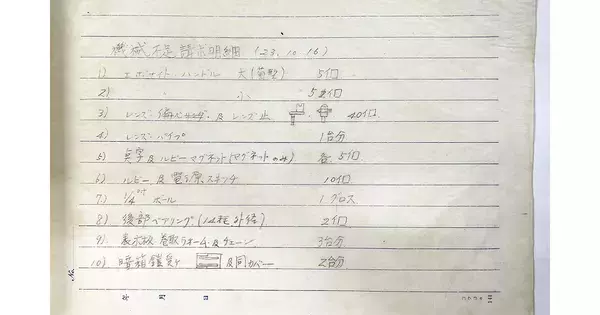 機械不足請求明細 (23.10.16)
1) エボナイト・ハンドル 大(英型) 5個
2) 〃 〃 小 5個
3) レンズ 及レンズ止 40個
4) レンズ・パイプ 1台分
5) 英字及ルビーマグネット(マグネットのみ) 各5個
6) ルビー及電源スイッチ 10個
7) 1/4" ボール 1グロス
8) 後部ベアリング(14粍外径) 2個
9) 表示板巻取ウォーム及チェーン 3台分
10) 暗箱 及同カバー 2台分
No.
年 月 日
コクヨ